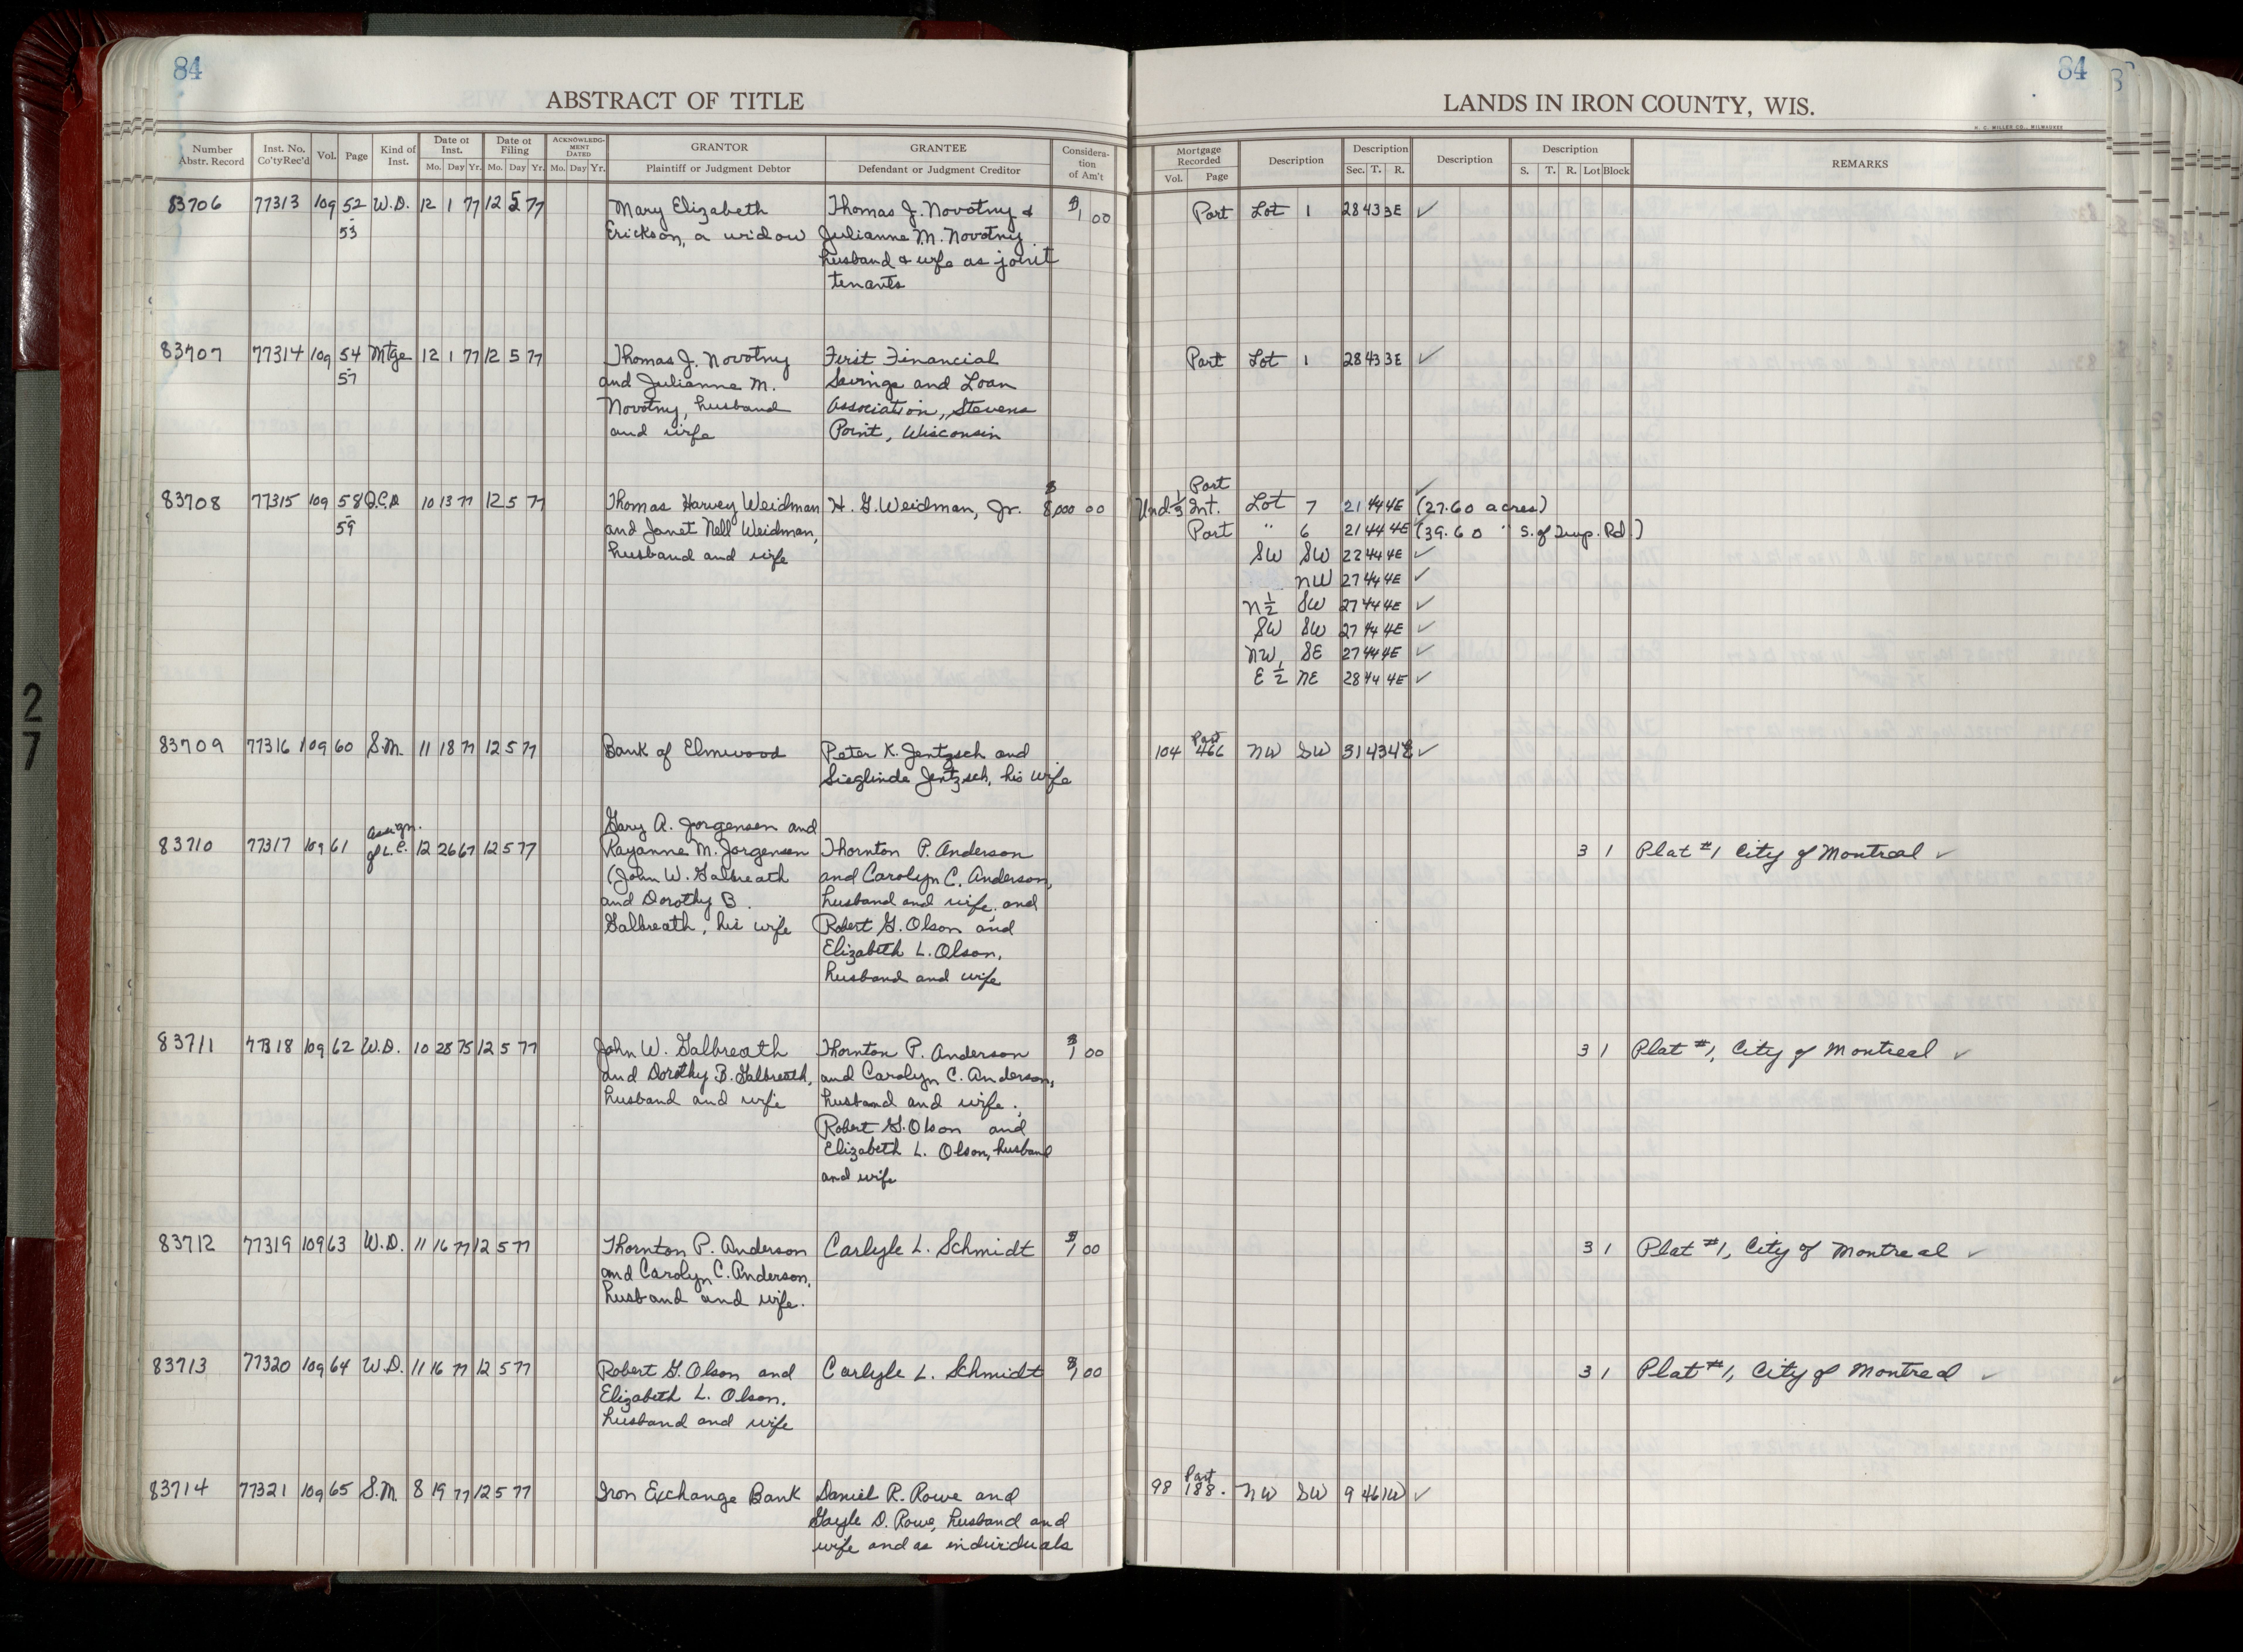 84
84
ABSTRACT OF TITLE
LANDS IN IRON COUNTY, WIS.
H. C. MILLER CO., MILWAUKEE
Number Abstr. Record Inst. No. Co'ty Rec'd Vol. Page Kind of Inst. Date of Inst. Mo. Day Yr. Date of Filing Mo. Day Yr. ACKNOWLEDGMENT DATED Mo. Day Yr. GRANTOR Plaintiff or Judgment Debtor GRANTEE Defendant or Judgment Creditor Consideration of Am't
Mortgage Recorded Vol. Page Description Description Sec. T. R. Description Description S. T. R. Lot Block REMARKS
83706 77313 109 52 W.D. 12 1 77 12 5 77 Mary Elizabeth Thomas J. Novotny & $1 00 Part Lot 1 28 43 3E ✓
- 53 Erickson, a widow Julianne M. Novotny
husband & wife as joint
tenants
83707 77314 109 54 Mtge 12 1 77 12 5 77 Thomas J. Novotny First Financial Part Lot 1 28 43 3E ✓
- 57 and Julianne M. Savings and Loan
Novotny, husband Association, Stevens
and wife Point, Wisconsin
Part
83708 77315 109 58 Q.C.D. 10 13 77 12 5 77 Thomas Harvey Weidman H. G. Weidman, Jr. $8,000 00 Und. 1/3 Int. Lot 7 21 44 4E ✓ (27.60 acres)
- 59 and Janet Nell Weidman, Part " 6 21 44 4E (39.60 " S. of Twp. Rd.)
husband and wife SW SW 22 44 4E ✓
NW 27 44 4E ✓
N 1/2 SW 27 44 4E ✓
SW SW 27 44 4E ✓
NW SE 27 44 4E ✓
E 1/2 NE 28 44 4E ✓
Part
83709 77316 109 60 S.M. 11 18 77 12 5 77 Bank of Elmwood Peter K. Jentzsch and 104 466 NW SW 31 43 4E ✓
Sieglinde Jentzsch, his wife
Gary A. Jorgensen and
Assign.
83710 77317 109 61 of L.C. 12 26 67 12 5 77 Rayanne M. Jorgensen Thornton P. Anderson 3 1 Plat #1 City of Montreal ✓
(John W. Galbreath and Carolyn C. Anderson,
and Dorothy B. husband and wife, and
Galbreath, his wife Robert G. Olson and
Elizabeth L. Olson,
husband and wife
83711 77318 109 62 W.D. 10 28 75 12 5 77 John W. Galbreath Thornton P. Anderson $1 00 3 1 Plat #1, City of Montreal ✓
and Dorothy B. Galbreath, and Carolyn C. Anderson,
husband and wife husband and wife;
Robert G. Olson and
Elizabeth L. Olson, husband
and wife
83712 77319 109 63 W.D. 11 16 77 12 5 77 Thornton P. Anderson Carlyle L. Schmidt $1 00 3 1 Plat #1, City of Montreal ✓
and Carolyn C. Anderson,
husband and wife.
83713 77320 109 64 W.D. 11 16 77 12 5 77 Robert G. Olson and Carlyle L. Schmidt $1 00 3 1 Plat #1, City of Montreal ✓
Elizabeth L. Olson,
husband and wife
Part
83714 77321 109 65 S.M. 8 19 77 12 5 77 Iron Exchange Bank Daniel R. Rowe and 98 188. NW SW 9 46 1W ✓
Gayle D. Rowe, husband and
wife and as individuals
27